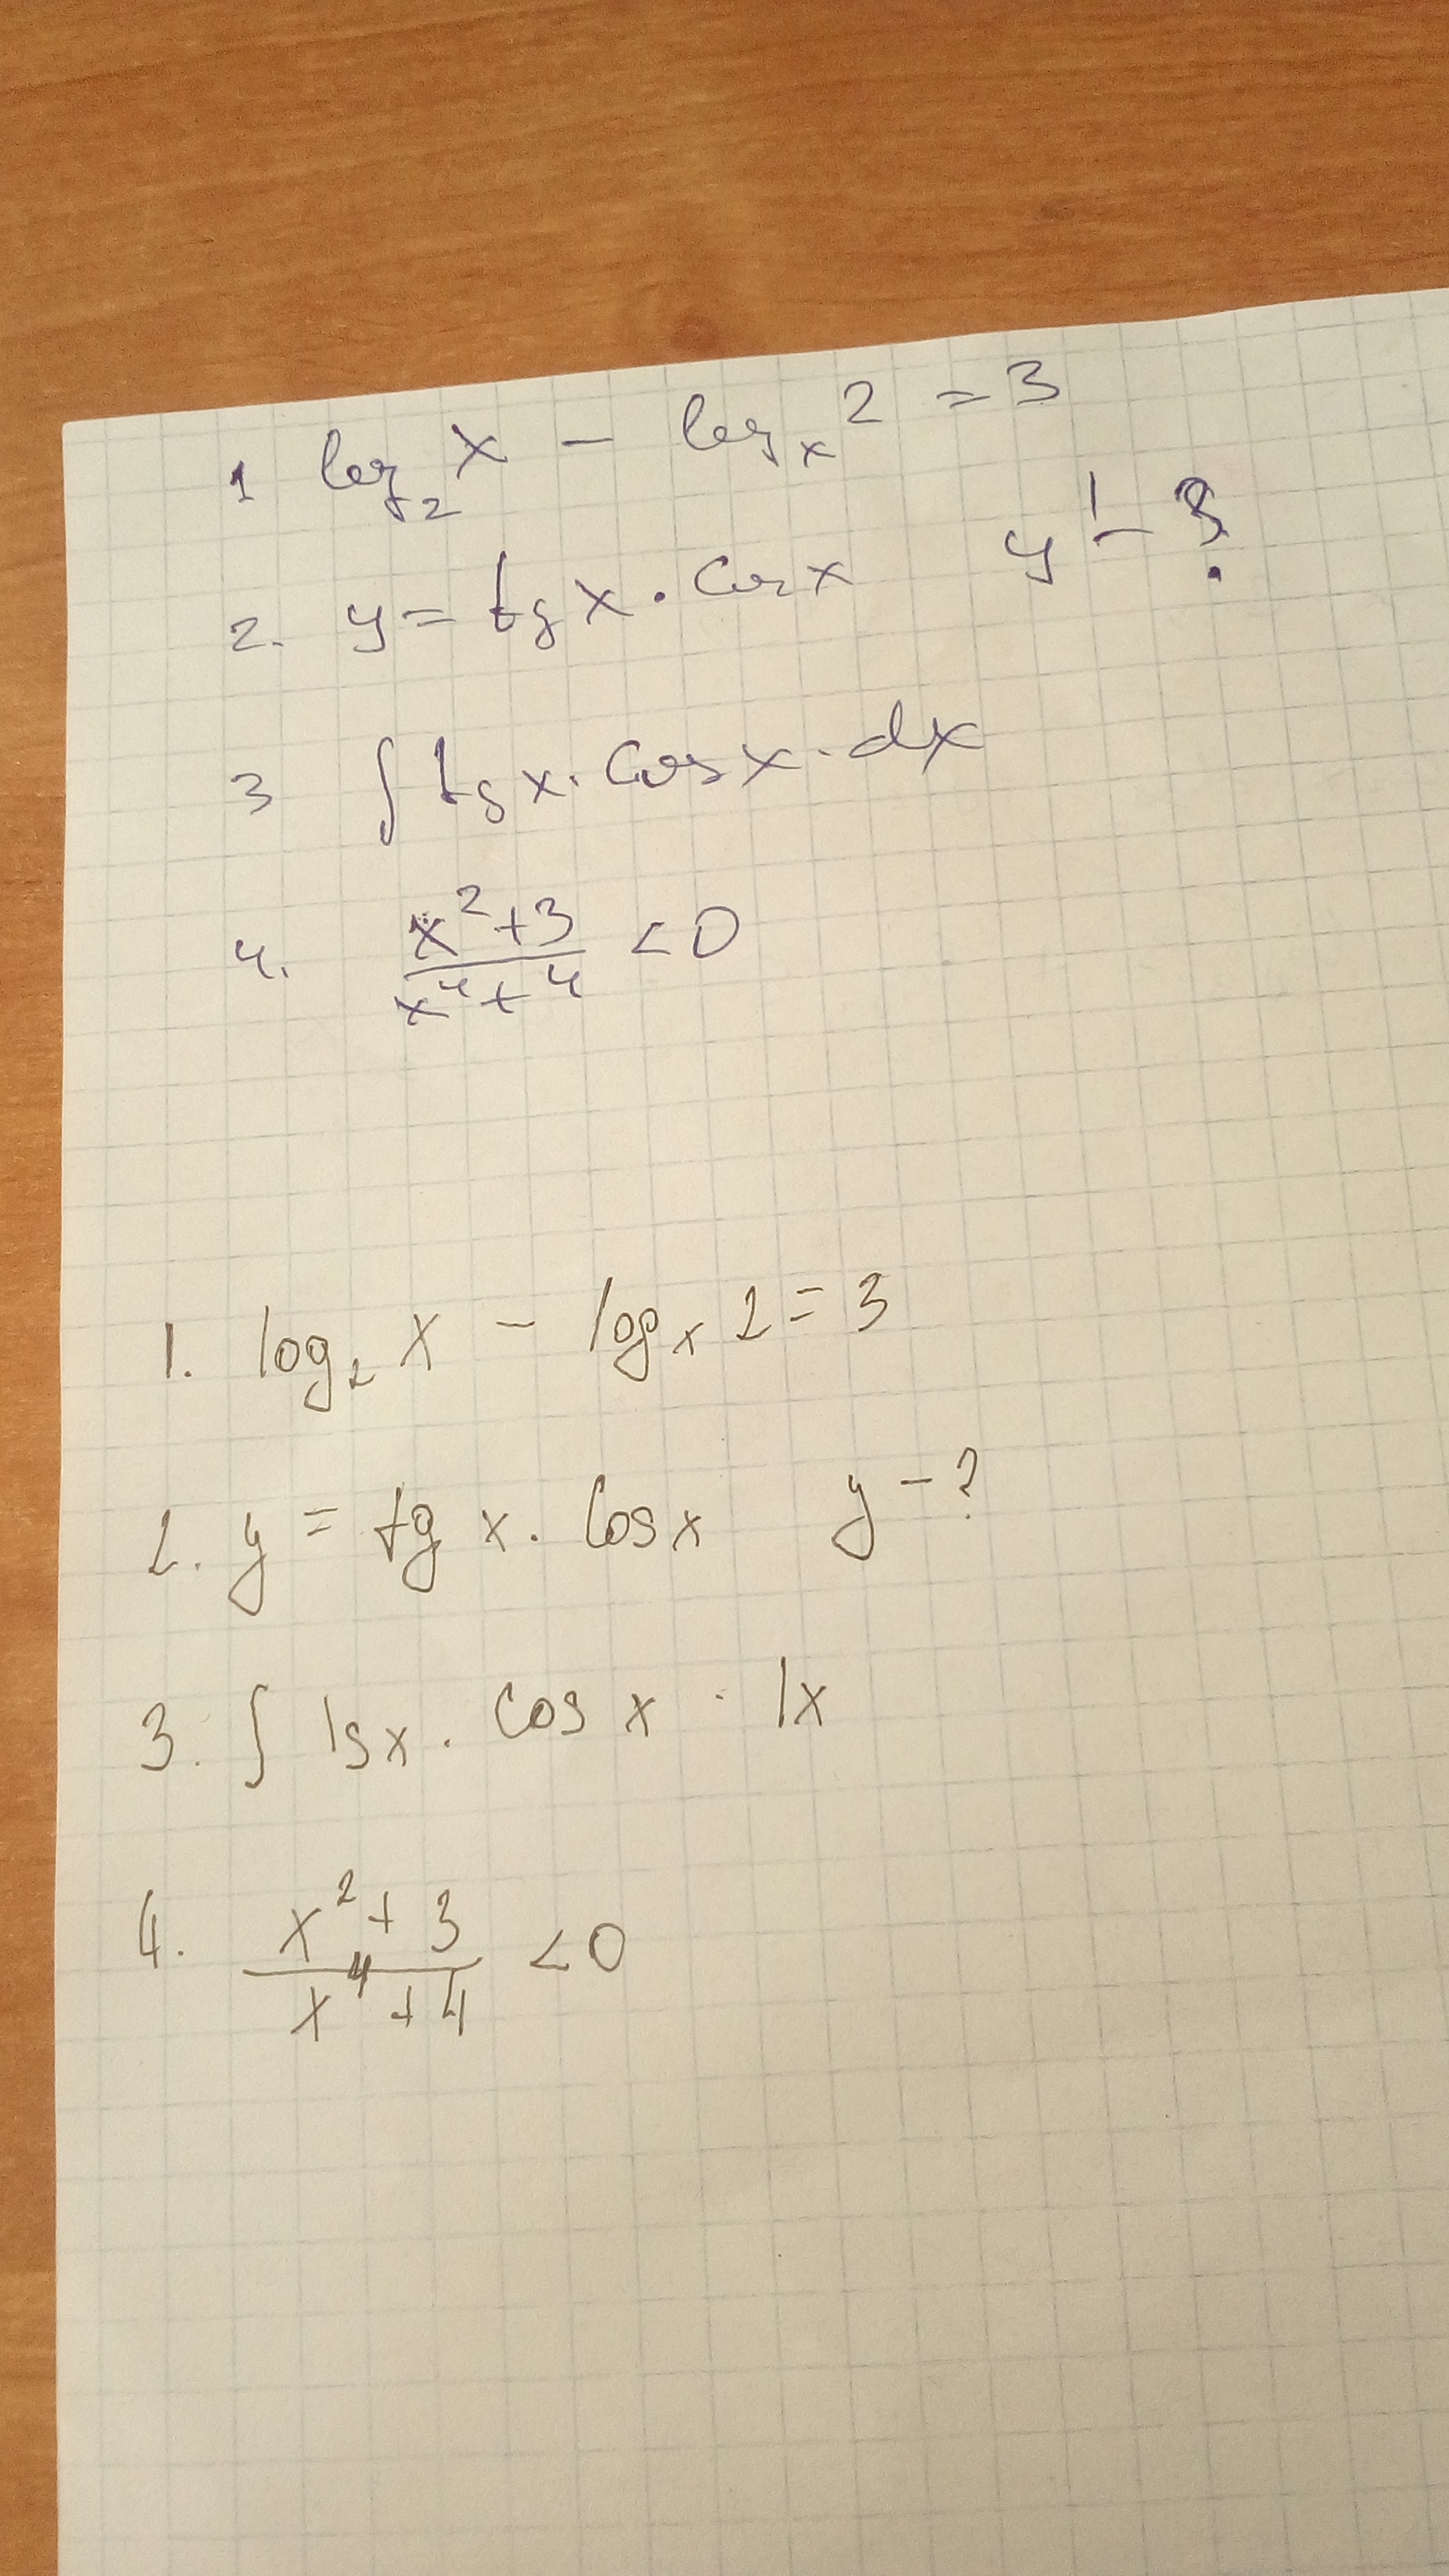 1 log₂ x - logₓ 2 = 3
2. y = tg x · cos x y' - ?
3 ∫ tg x · cos x · dx
4. (x² + 3)/(x⁴ + 4) < 0
1. log₂ x - logₓ 2 = 3
2. y = tg x · cos x y - ?
3. ∫ lsx · cos x · lx
4. (x² + 3)/(x⁴ + 4) < 0